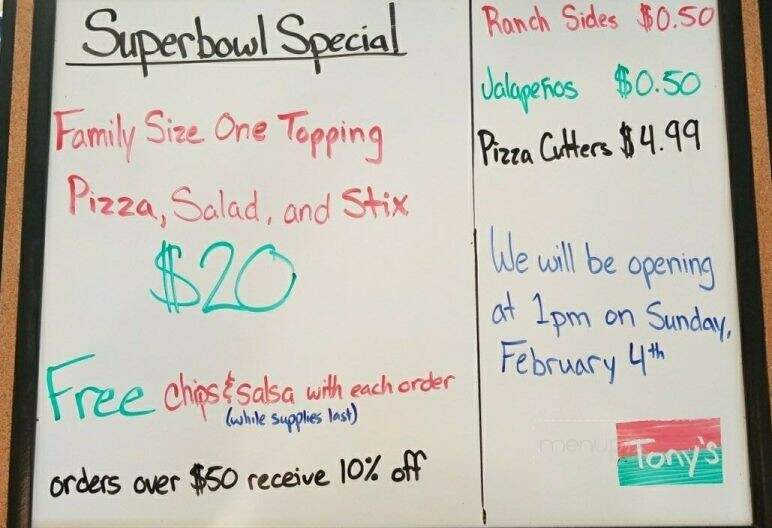 Superbowl Special
Family Size One Topping
Pizza, Salad, and Stix
$20
Free chips & salsa with each order
(while supplies last)
orders over $50 receive 10% off
Ranch Sides $0.50
Jalapeños $0.50
Pizza Cutters $4.99
We will be opening
at 1pm on Sunday,
February 4th
Tony's